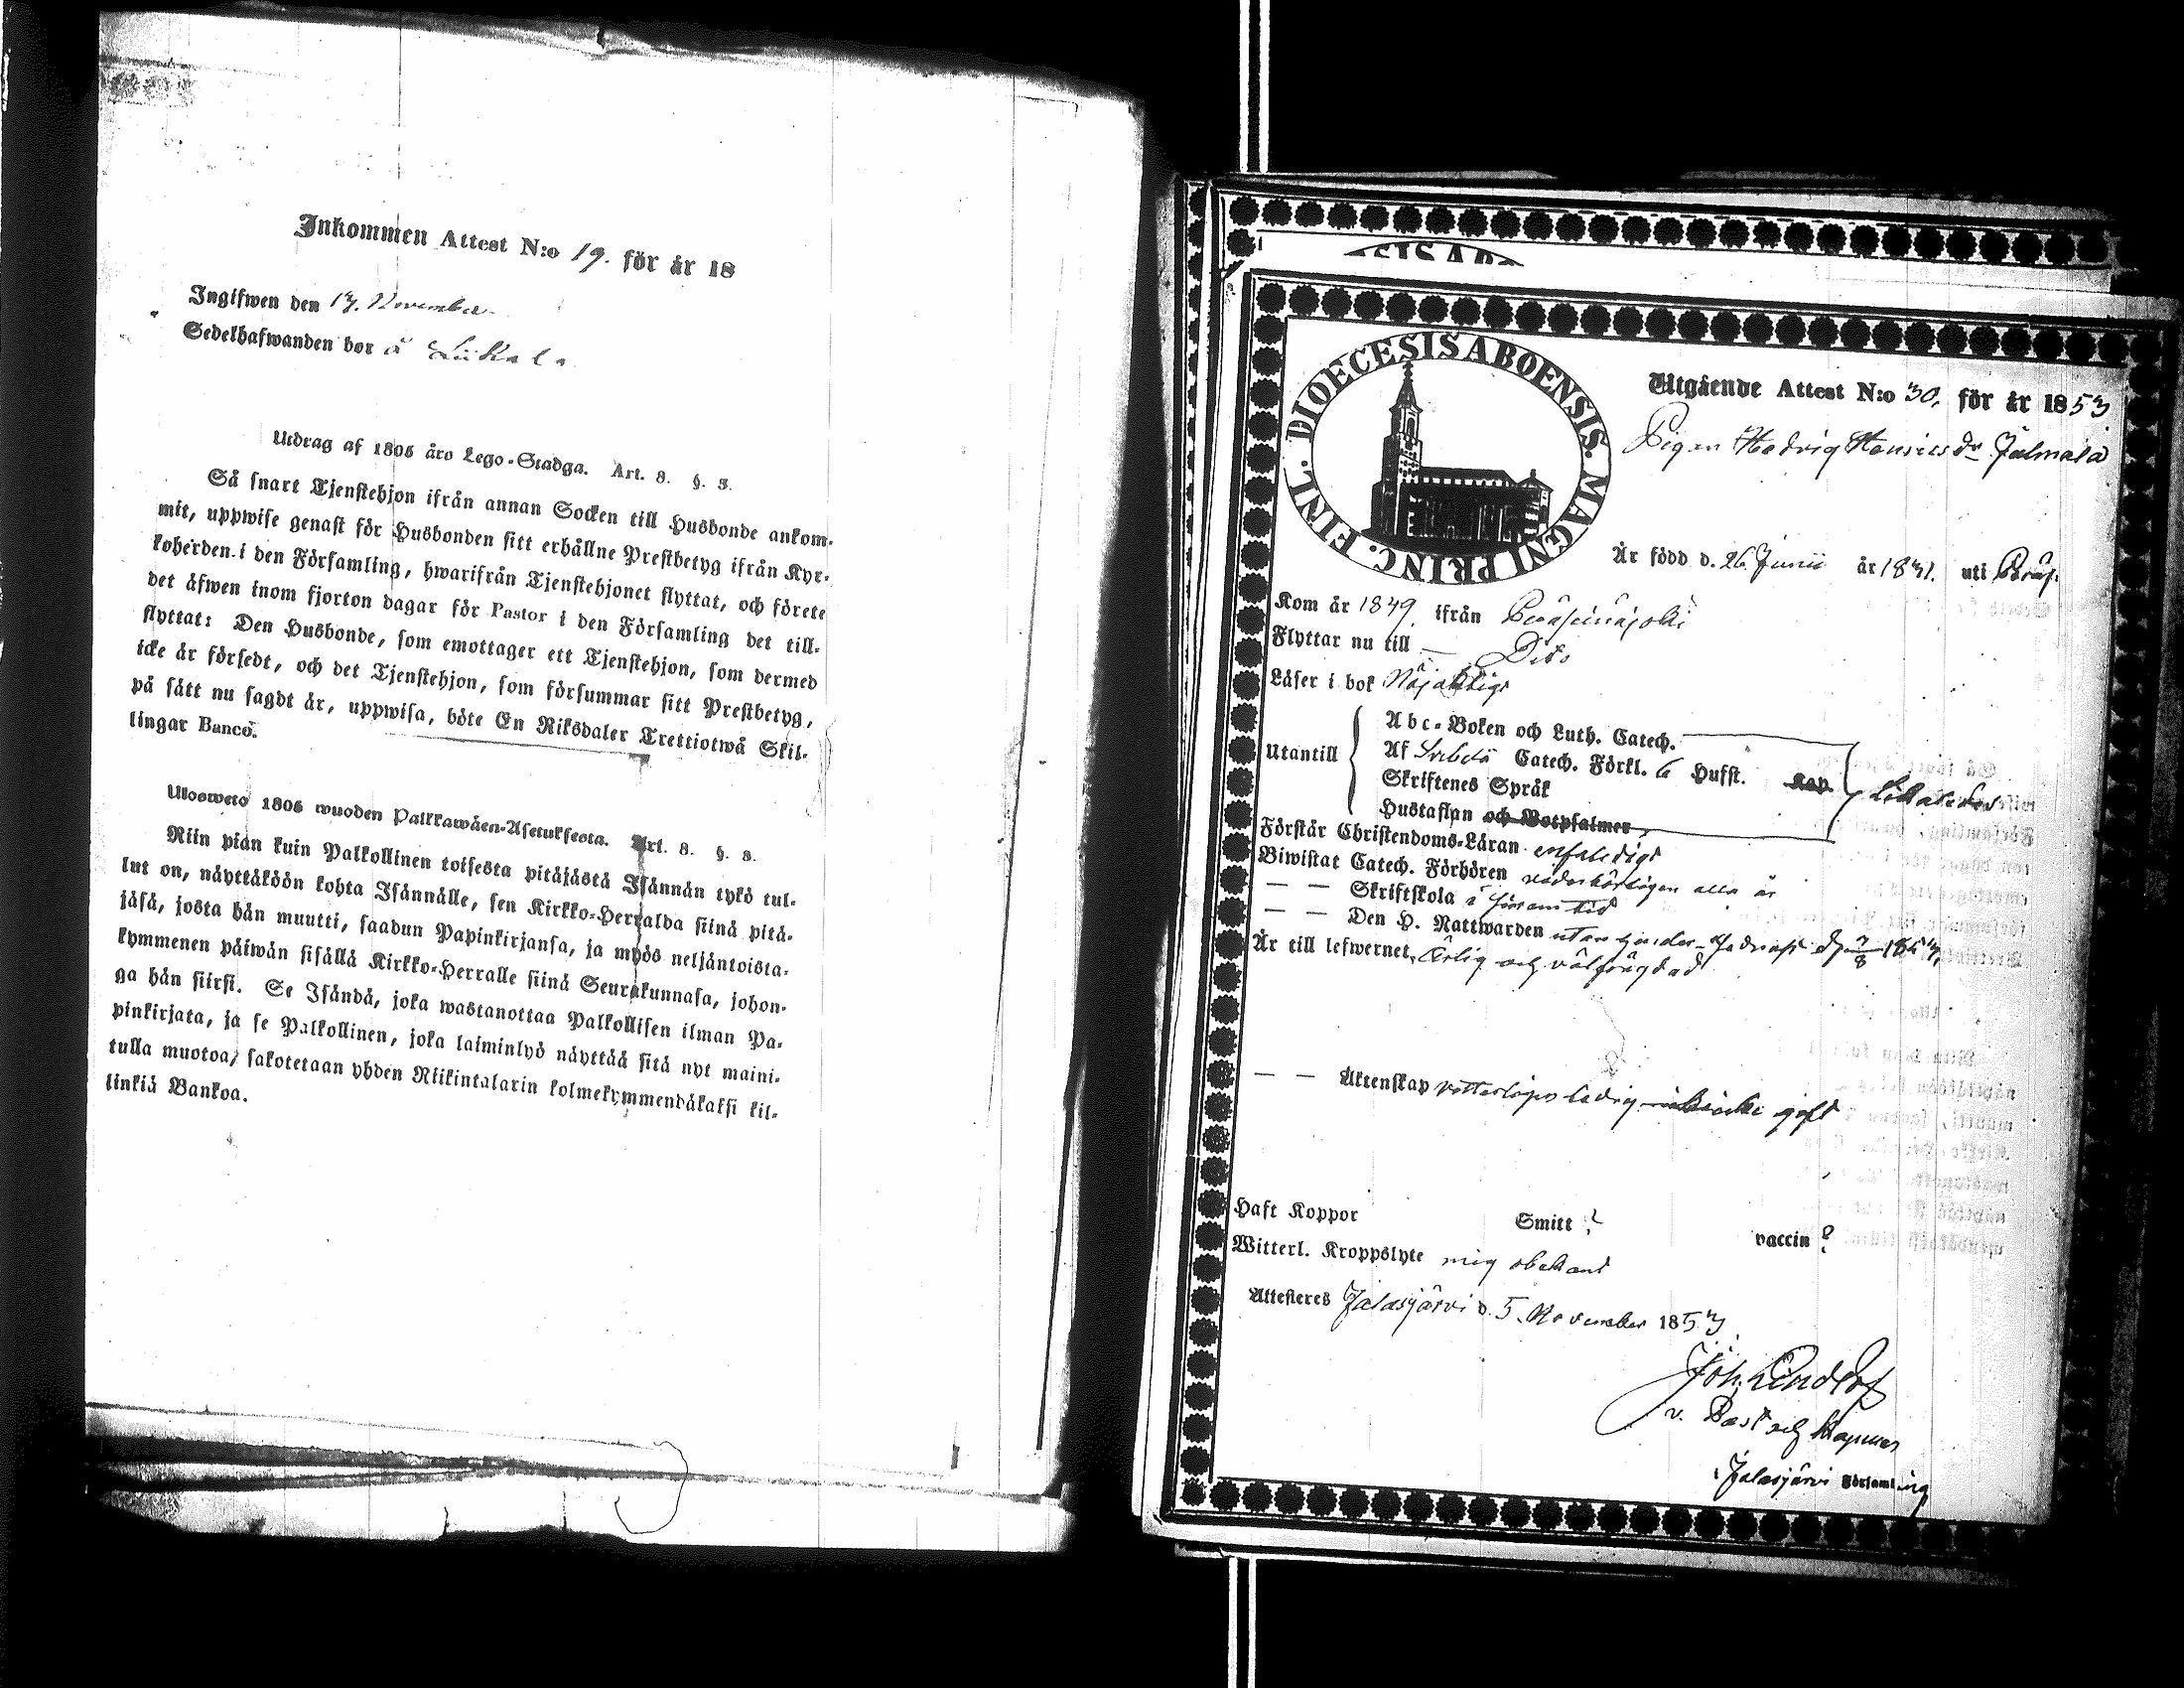 Inkommen Attest N:o 19. för år 18
Ingifwen den 13. November.
Sedelhafwanden bor å
Utdrag af 1805 åro Lego-Stadga. Art. 8. §. 3.
Så snart Tjenstehjon ifrån annan Socken till Husbonde ankom-
mit, uppwise genast för Husbonden sitt erhållne Prestbetyg ifrån Kyr-
koherden i den Församling, hwarifrån Tjenstehjonet flyttat, och förete
det äfwen inom fjorton dagar för Pastor i den Församling det till-
flyttat: Den Husbonde, som emottager ett Tjenstehjon, som dermed
icke är försedt, och det Tjenstehjon, som försummar sitt Prestbetyg,
på sätt nu sagdt är, uppwisa, böte En Riksdaler Trettiotwå Skil-
lingar Banco.
Ulosweto 1805 wuoden Palkkawäen-Asetuksesta. Art. 8. §. 3.
Niin pian kuin Palkollinen toisesta pitäjästä Isännän tykö tul-
lut on, näyttäköön kohta Isännälle, sen Kirkko-Herralda siinä pitä-
jäsä, josta hän muutti, saadun Papinkirjansa, ja myös neljäntoista-
kymmenen päiwän sisällä Kirkko-Herralle siinä Seurakunnasa, johon-
ga hän siirsi. Se Isändä, joka wastanottaa Palkollisen ilman Pa-
pinkirjata, ja se Palkollinen, joka laiminlyö näyttää sitä nyt maini-
tulla muotoa, sakotetaan yhden Riikintalarin kolmekymmendäkaksi kil-
linkiä Bankoa.
SIS ABO
DIOECESIS ABOENSIS. MAGNI PRINC. FINL.
Utgående Attest N:o 30. för år 1853
Pigan Hedvig dr
Är född d. 26 Junii år 1831. uti
Kom år 1849 ifrån Peräseinäjoki
Flyttar nu till — Dito
Läser i bok
Utantill
Abc-Boken och Luth. Catech.
Af Catech. Förkl. 6 Hufst. Kap.
Skriftenes Språk
Hustaflan och Botpsalmer
Förstår Christendoms-Läran enfaldigt
Biwistat Catech. Förhören
— — Skriftskola i
— — Den H. Nattwarden utan hinder
Är till lefwernet Ärlig och välfrägdad
— — Äktenskap ledig gift
Haft Koppor Smitt ? vaccin ?
Witterl. Kroppslyte mig obekant
Attesteres Jalasjärvi d. 5. November 1853
Joh.
v. Past och
i Jalasjärvi Församling